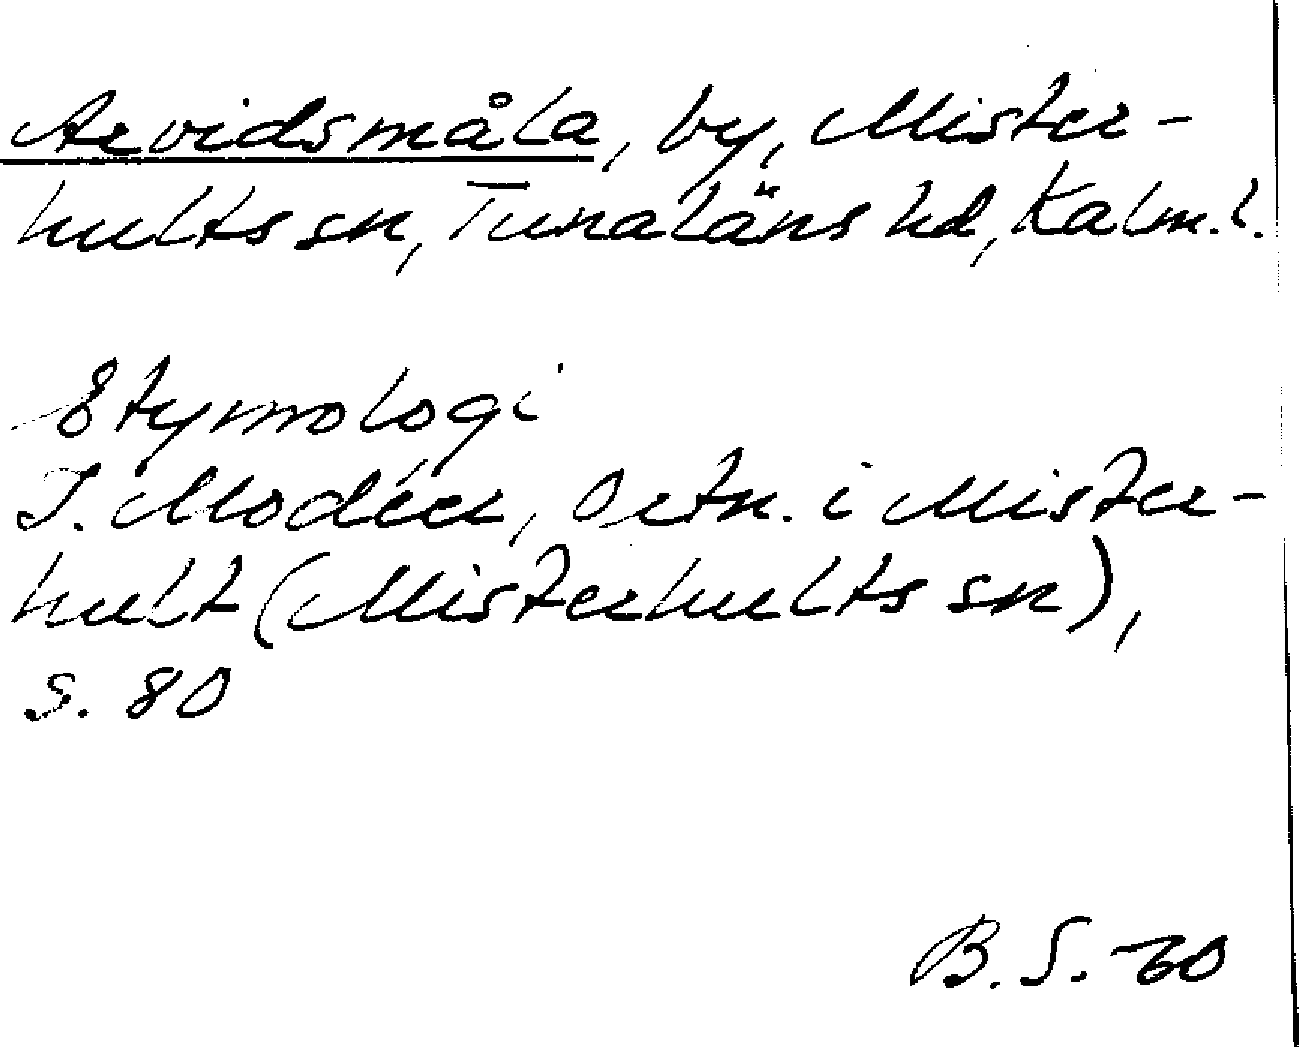 Arvidsmåla, by, Mister-
hults sn, Tunaläns hd, Kalm. l.
Etymologi
I. Modéer, Ortn. i Mister-
hult (Misterhults sn),
s. 80
B. S. -60